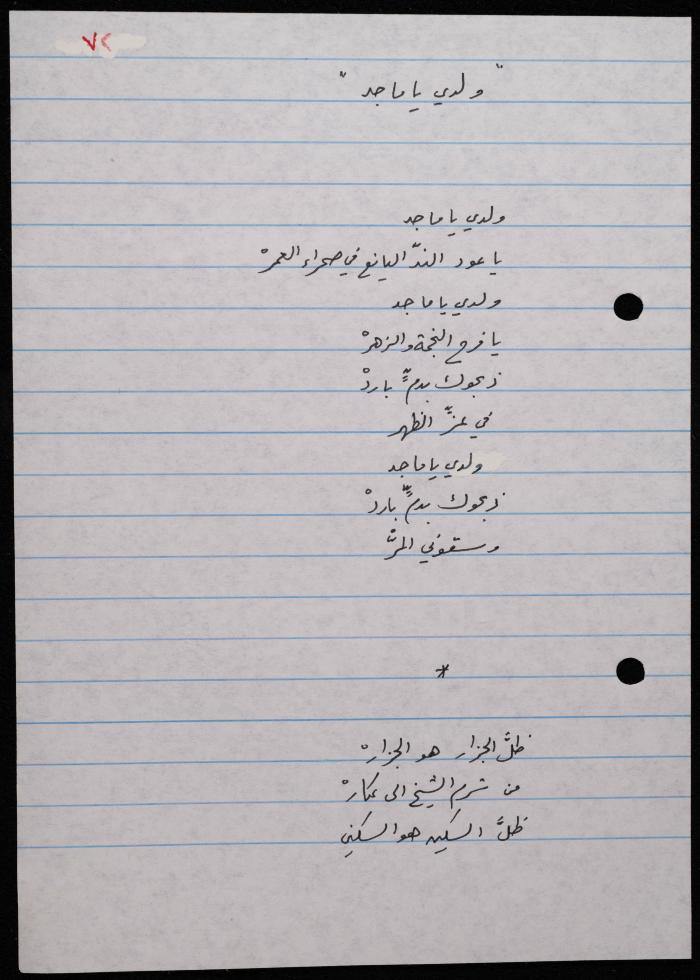 ٧٢
" ولدي يا ماجد "
ولدي يا ماجد
يا عود الندّ اليانع في صحراء العمرْ
ولدي يا ماجد
يا فرح النجمة والزهرْ
ذبحوك بدمٍّ باردْ
في عزِّ الظهر
ولدي يا ماجد
ذبحوك بدمٍّ باردْ
وسقوني المرّْ
*
ظلَّ الجزار هو الجزارْ
من شرم الشيخ الى عكارْ
ظلَّ السكين هو السكين